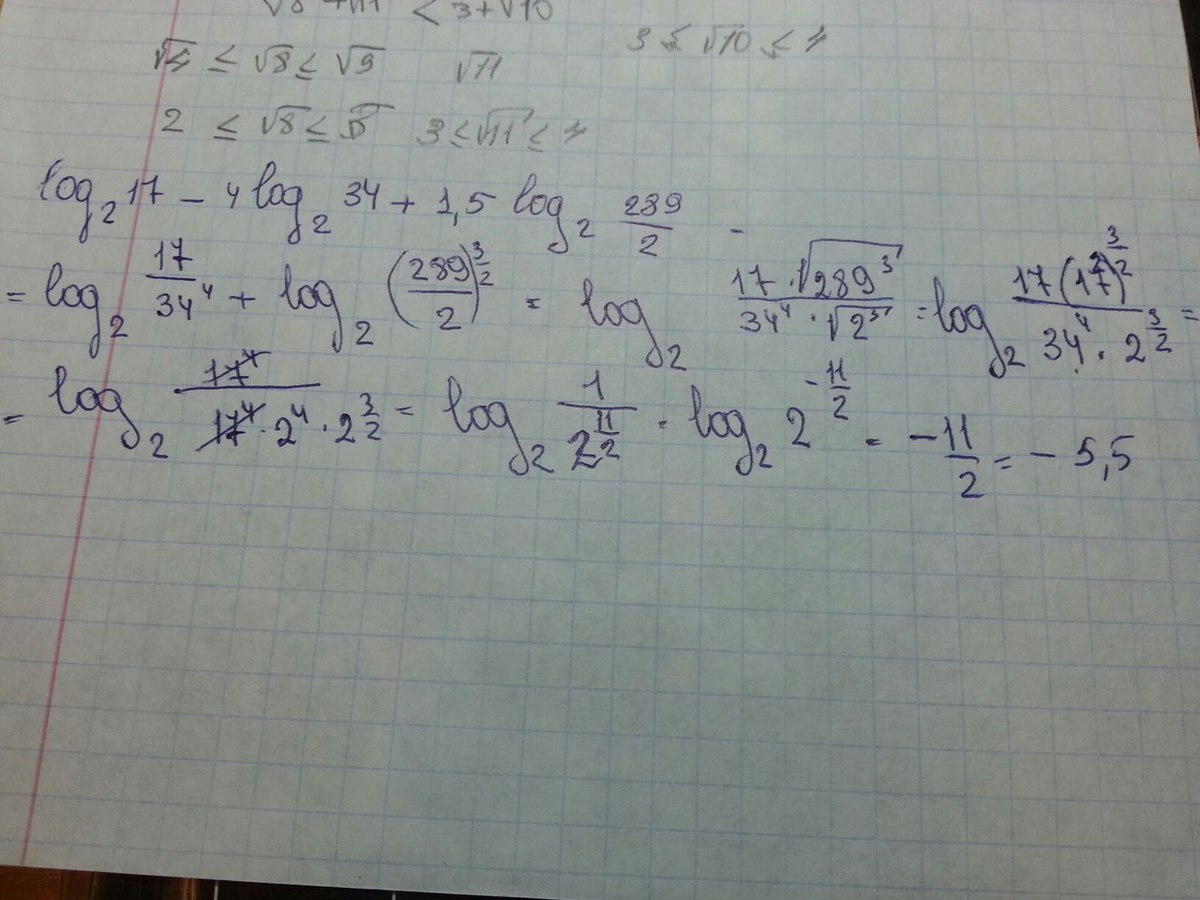 √8 + √11 < 3 + √10
√4 ≤ √8 ≤ √9 √11 3 ≤ √10 ≤ 4
2 ≤ √8 ≤ 3 ≤ √11 ≤ 4
log₂ 17 − 4 log₂ 34 + 1,5 log₂ 289/2 =
= log₂ 17/34⁴ + log₂ (289/2)^(3/2) = log₂ (17 · √289³)/(34⁴ · √2³) = log₂ (17(17²)^(3/2))/(34⁴ · 2^(3/2)) =
= log₂ 17⁴/(17⁴ · 2⁴ · 2^(3/2)) = log₂ 1/2^(11/2) = log₂ 2^(−11/2) = −11/2 = − 5,5